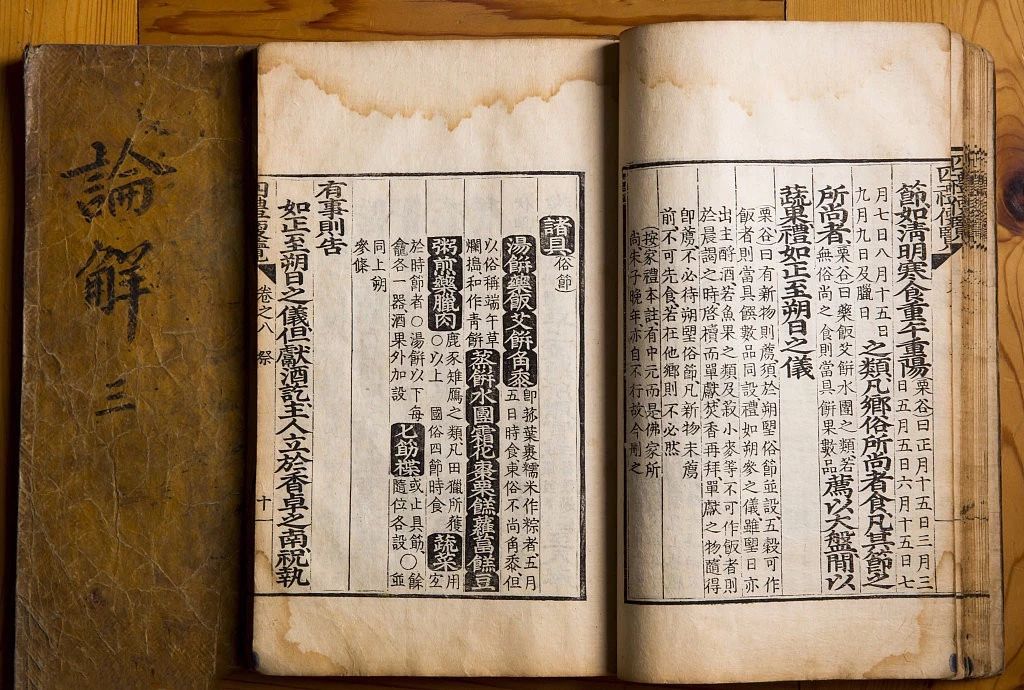 論解 三
四禮便覽
節如清明寒食重午重陽
栗谷曰正月十五日三月三
日五月五日六月十五日七
月七日八月十五日
九月九日及臘日
之類凡鄕俗所尚者食凡其節之
所尚者
栗谷曰藥飯艾餠水團之類若
無俗尚之食則當具餠果數品
薦以大盤間以
蔬果禮如正至朔日之儀
栗谷曰有新物則薦須於朔望俗節並設五穀可作
飯者則當具饌數品同設禮如朔參之儀雖望日亦
出主酹酒若魚果之類及菽小麥等不可作飯者則
於晨謁之時啓櫝而單獻焚香再拜單獻之物隨得
卽薦不必待朔望俗節凡新物未薦
前不可先食若在他鄕則不必然
按家禮本註有中元而是佛家所
尚朱子晚年亦自不行故今刪之
諸具 俗節
湯餠藥飯艾餠角黍
卽菰葉裹糯米作粽者五月
五日時食東俗不尚角黍但
以俗稱端午草
爛搗和作靑餠
蒸餠水團霜花棗栗餻蘿葍餻豆
粥煎藥臘肉
鹿豕雉鴈之類凡田獵所獲
〇以上國俗四節時食
蔬菜
用
於時節者〇湯餠以下每
龕各一器酒果外加設
匕筯楪
或止具筯〇餘
隨位各設〇並
同上朔
參條
有事則告
如正至朔日之儀但獻酒訖主人立於香卓之南祝執
四禮便覽 卷之八 祭 十一